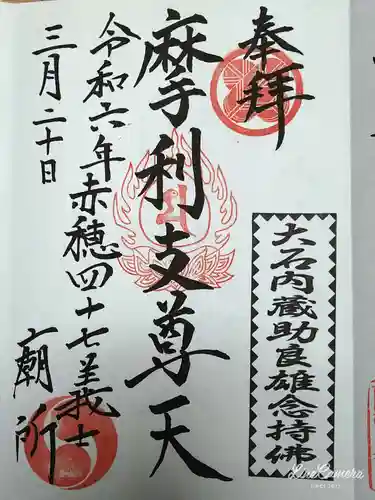 奉拝
大石内蔵助良雄念持佛
摩利支尊天
令和六年赤穂四十七義士
三月二十日
廟所
LiveCamera